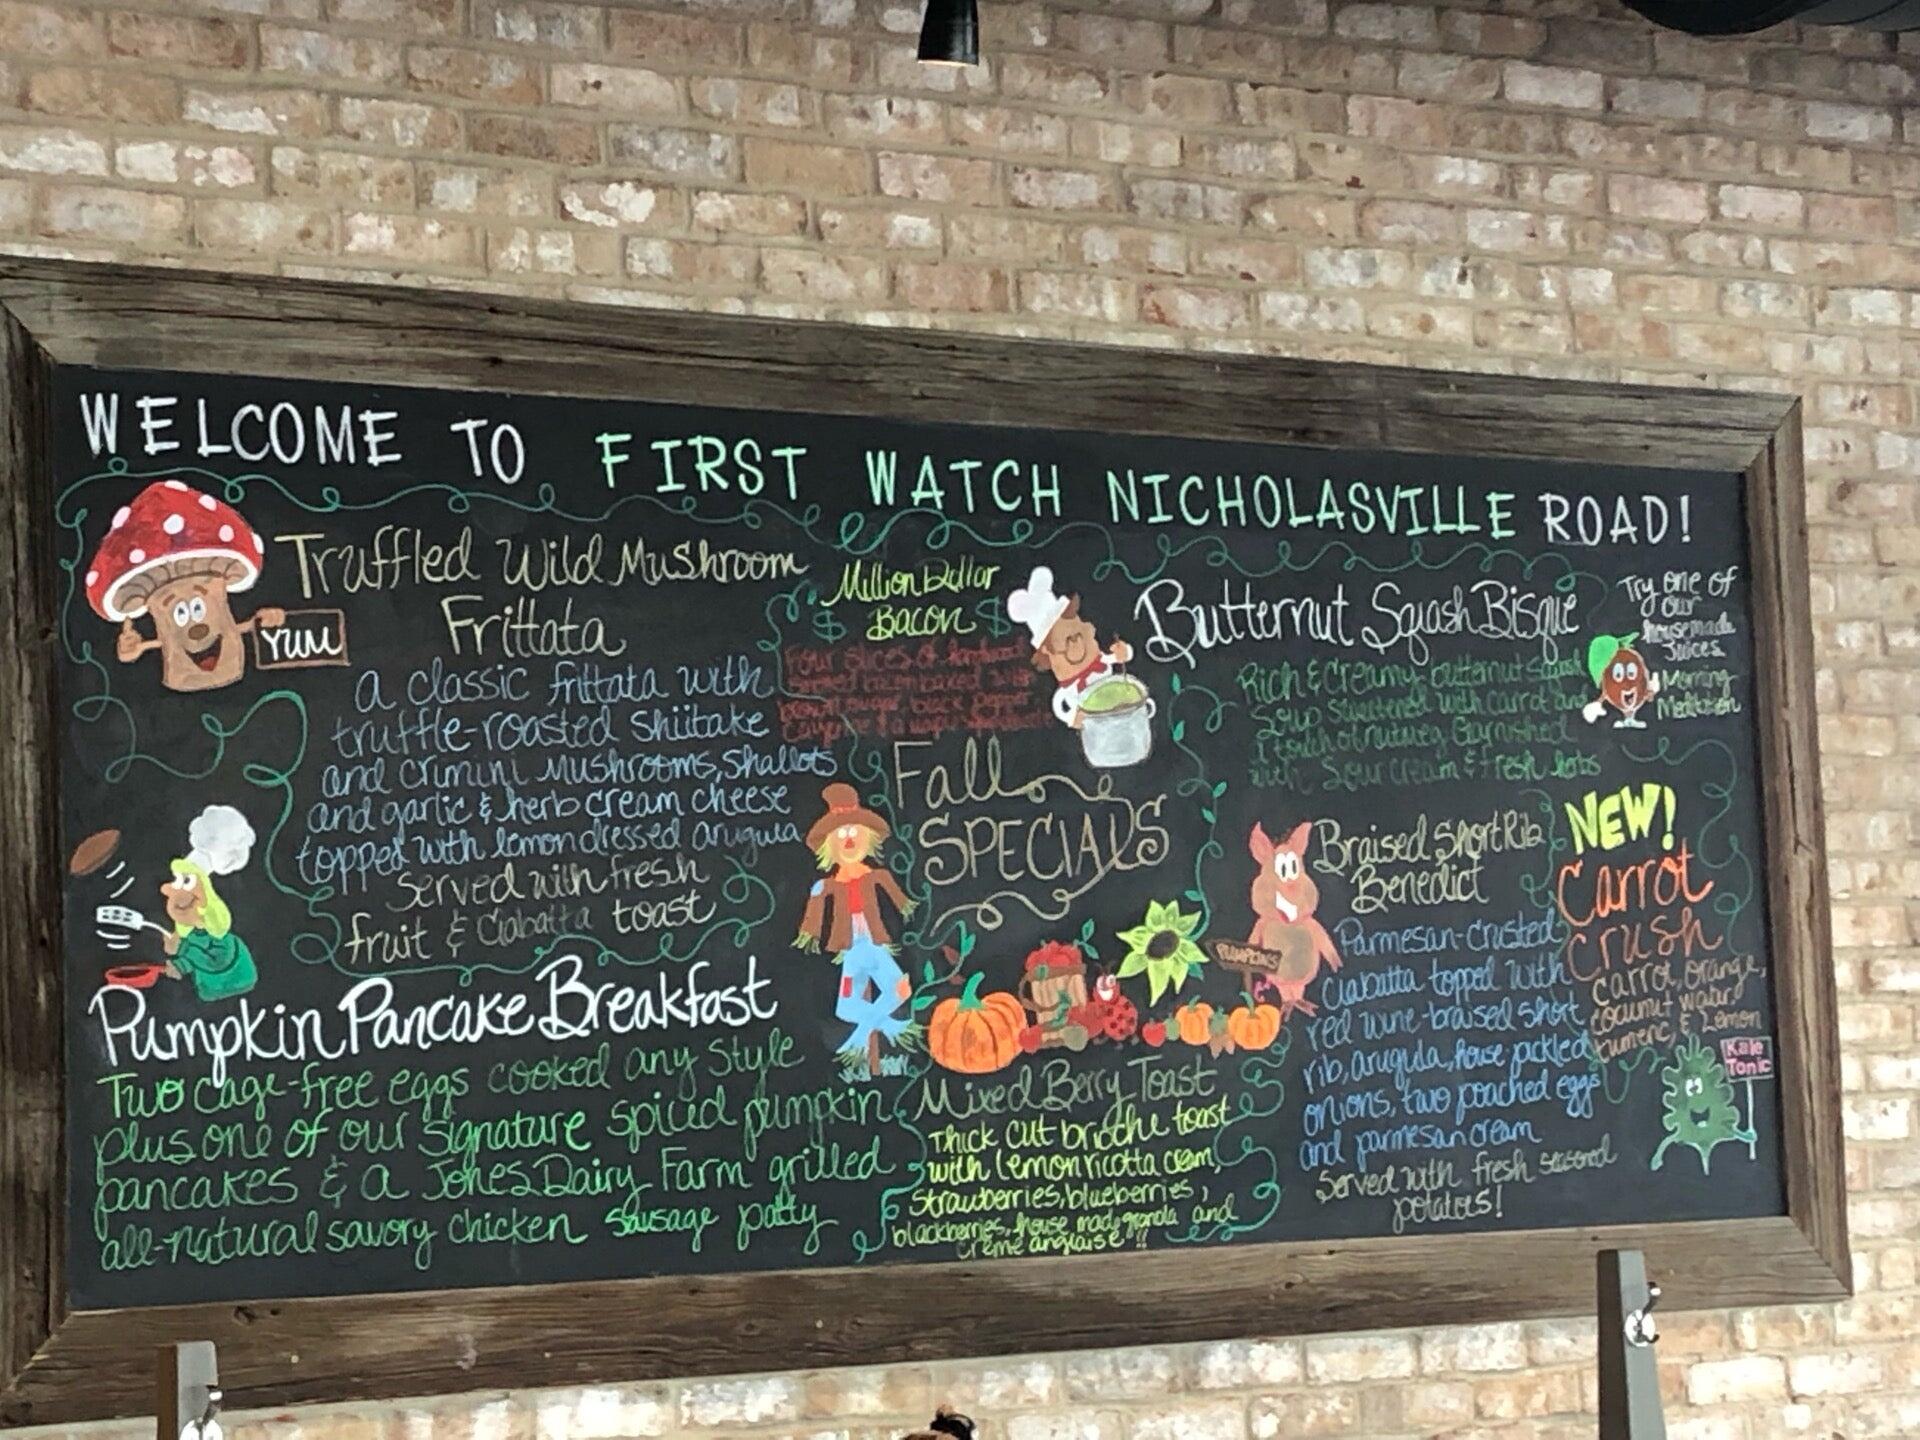 WELCOME TO FIRST WATCH NICHOLASVILLE ROAD!
YUM
Truffled Wild Mushroom
Frittata
a classic frittata with
truffle-roasted shiitake
and crimini mushrooms, shallots
and garlic & herb cream cheese
topped with lemon dressed arugula
served with fresh
fruit & Ciabatta toast
Pumpkin Pancake Breakfast
Two cage-free eggs cooked any style
plus one of our signature spiced pumpkin
pancakes & a Jones Dairy Farm grilled
all-natural savory chicken sausage patty
Million Dollar
$ Bacon $
Four slices of
baked with
brown sugar, black pepper
cayenne & a maple syrup
Fall
SPECIALS
PUMPKINS
Mixed Berry Toast
Thick cut brioche toast
with lemon ricotta cream,
strawberries, blueberries,
blackberries, house made granola and
créme anglaise!!
Butternut Squash Bisque
Rich & Creamy butternut squash
Soup sweetened with carrot and
a touch of nutmeg. Garnished
with Sour cream & fresh herbs
Braised Short Rib
Benedict
Parmesan-crusted
Ciabatta topped with
red wine-braised short
rib, arugula, house pickled
onions, two poached eggs
and parmesan cream
Served with fresh seasoned
potatoes!
Try one of
our
housemade
Juices
Morning
Meditation
NEW!
Carrot
Crush
carrot, orange,
coconut water,
tumeric, & Lemon
Kale
Tonic